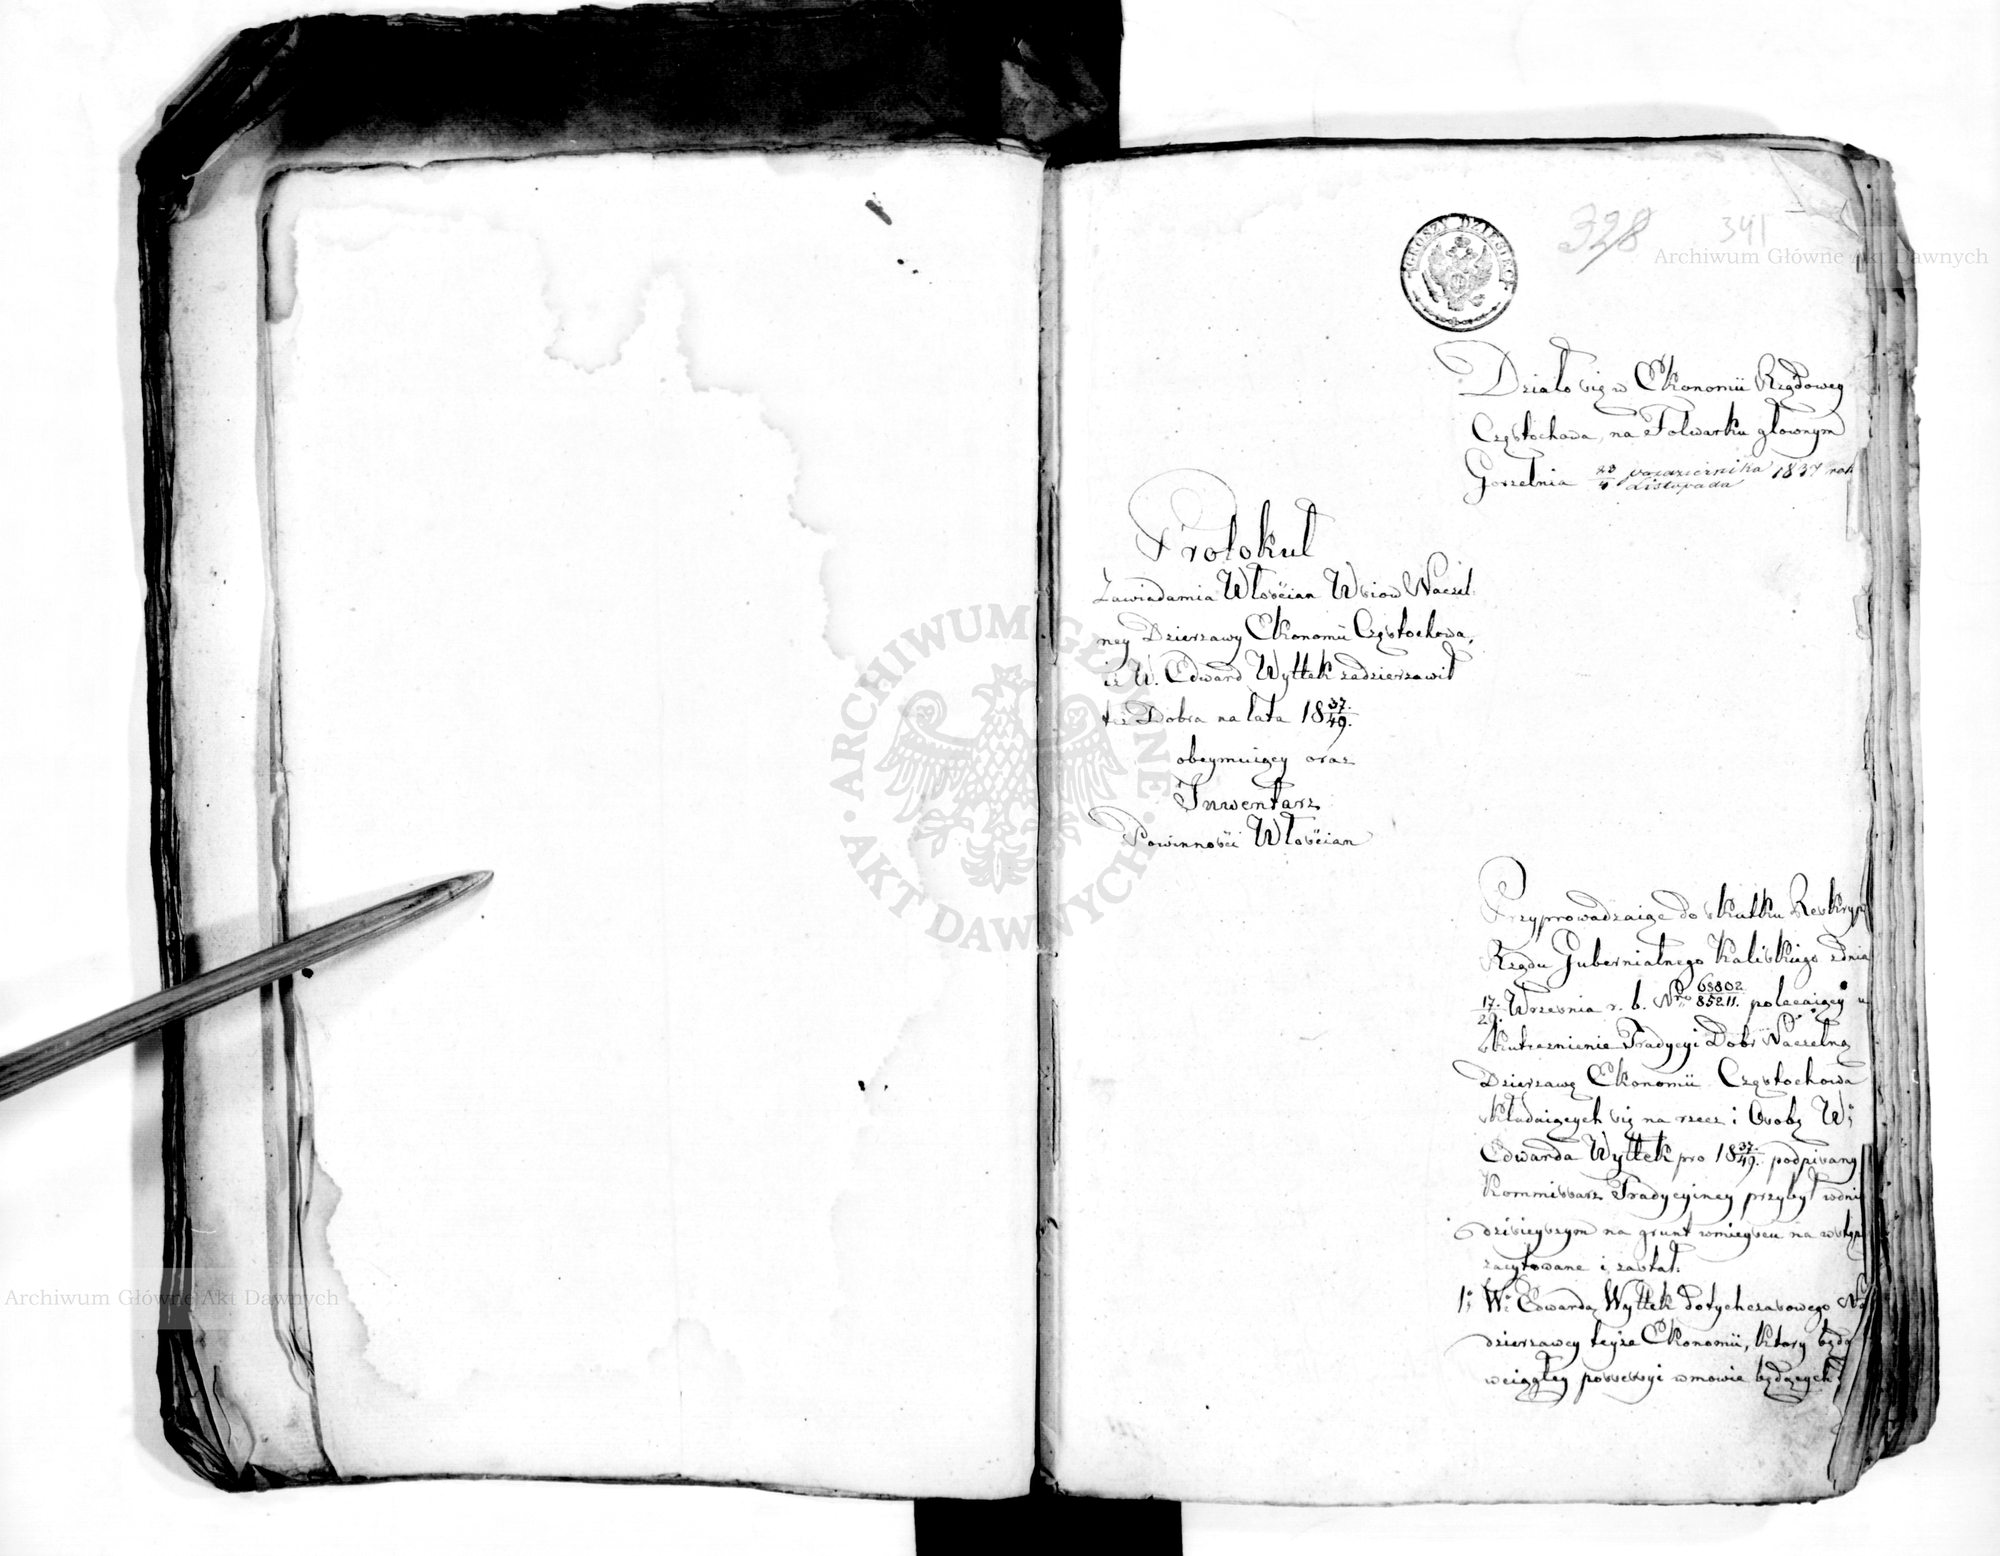 GROSZY DZIESIĘĆ
328
341
Archiwum Główne Akt Dawnych
Działo się w Ekonomii Rządowey
Częstochowa, na Folwarku głownym
Gorzelnia 23/4 Października/Listopada 1837 rok
Protokuł
Zawiadamia Włościan Wsiow Naczel:
ney Dzierzawy Ekonomii Częstochowa,
iż W. Edward Wyttek zadzierzawił
też Dobra na lata 18 37/49.
obeymuiący oraz
Inwentarz
Powinności Włościan
Przyprowadzaiąc do skutku Reskryp
Rządu Gubernialnego Kaliskiego zdnia
17./29. Września r. b. Nro 68802/85211. polecaiący u
skutecznienie Tradycyi Dobr Naczelną
Dzierzawę Ekonomii Częstochowa
składaiących się na rzecz i Osobę W:
Edwarda Wyttek pro 18 37/49. podpisany
Kommissarz Tradycyiney przybył wdniu
dzisieyszym na grunt wmieyscu na wstęp
zacytowane i zastał:
1: W: Edwarda Wyttek dotychczasowego Na
dzierzawcy teyże Ekonomii, ktory będą
wciągłey possessyi wmowie będących
ARCHIWUM GŁÓWNE AKT DAWNYCH
Archiwum Główne Akt Dawnych